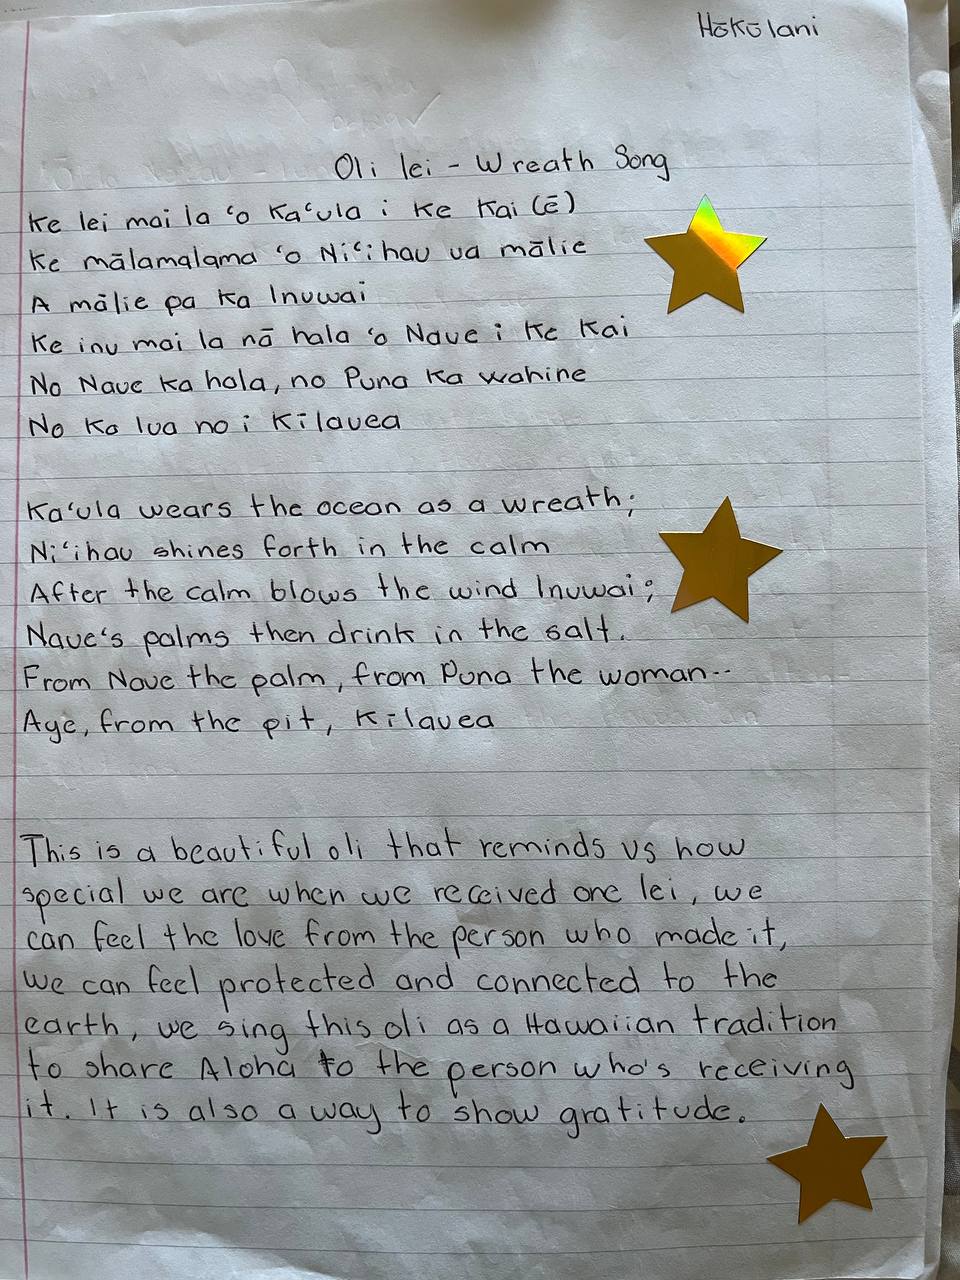 Hōkūlani
Oli lei - Wreath Song
Ke lei mai la ʻo Kaʻula i ke kai (ē)
Ke mālamalama ʻo Niʻihau ua mālie
A mālie pa ka Inuwai
Ke inu mai la nā hala ʻo Naue i ke kai
No Naue ka hala, no Puna ka wahine
No ka lua no i Kīlauea
Kaʻula wears the ocean as a wreath;
Niʻihau shines forth in the calm
After the calm blows the wind Inuwai;
Naueʻs palms then drink in the salt.
From Naue the palm, from Puna the woman--
Aye, from the pit, Kīlauea
This is a beautiful oli that reminds us how
special we are when we received one lei, we
can feel the love from the person who made it,
we can feel protected and connected to the
earth, we sing this oli as a Hawaiian tradition
to share Aloha to the person who's receiving
it. It is also a way to show gratitude.